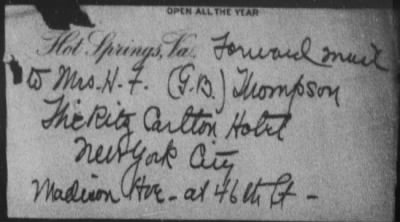 OPEN ALL THE YEAR
Hot Springs, Va. Forward mail
to Mrs. H. F. (G.B.) Thompson
The Ritz Carlton Hotel
New York City
Madison Ave - at 46th St -